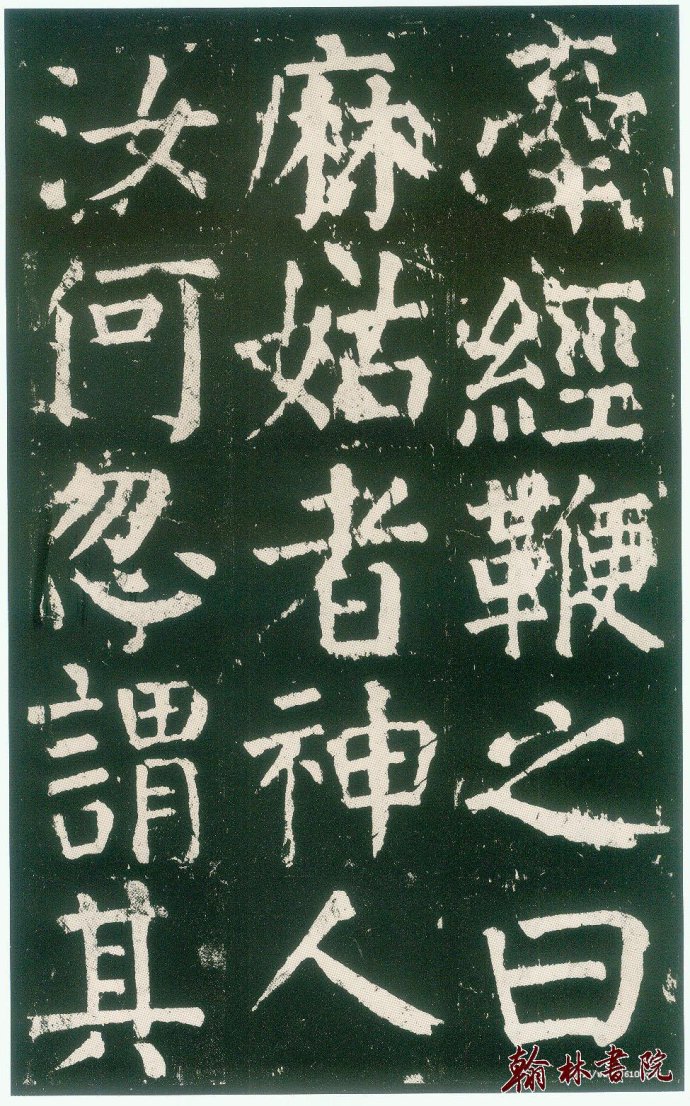 牽經鞭之曰
麻姑者神人
汝何忽謂其
翰林書院